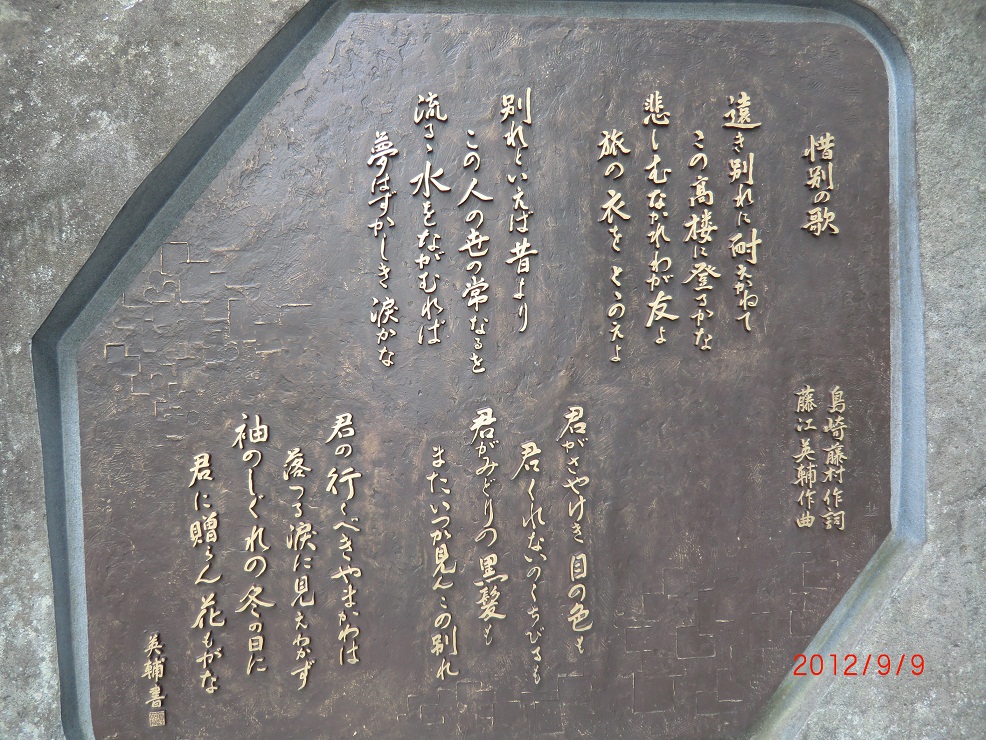 惜別の歌
島崎藤村作詞
藤江英輔作曲
遠き別れに耐えかねて
この高楼に登るかな
悲しむなかれわが友よ
旅の衣をとゝのえよ
別れといえば昔より
この人の世の常なるを
流るゝ水をながむれば
夢はずかしき涙かな
君がさやけき目の色も
君くれないのくちびるも
君がみどりの黒髪も
またいつか見んこの別れ
君の行くべきやまかわは
落つる涙に見えわかず
袖のしぐれの冬の日に
君に贈らん花もがな
英輔書
2012/9/9